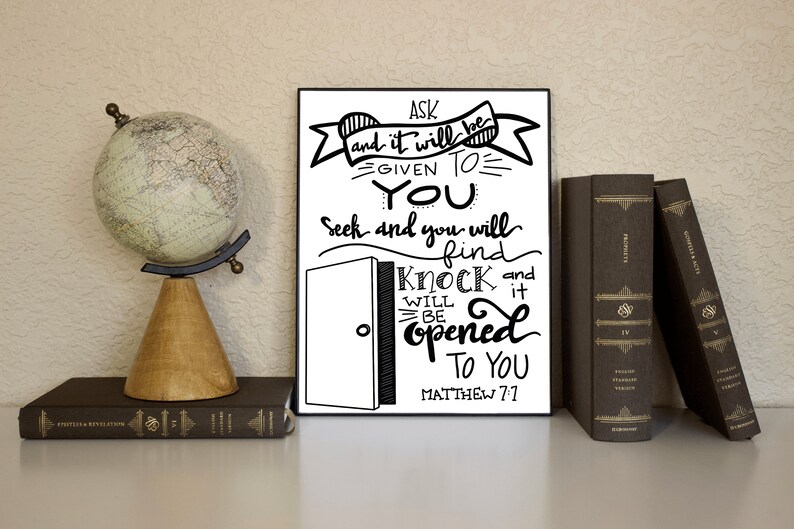 ASK
and it will be
GIVEN TO
YOU
Seek and you will
find
KNOCK and
WILL it
BE
opened
TO YOU
MATTHEW 7:7
EPISTLES & REVELATION
VI
ENGLISH
STANDARD
VERSION
PROPHETS
ESV
IV
ENGLISH
STANDARD
VERSION
CROSSWAY
GOSPELS & ACTS
ESV
V
ENGLISH
STANDARD
VERSION
CROSSWAY